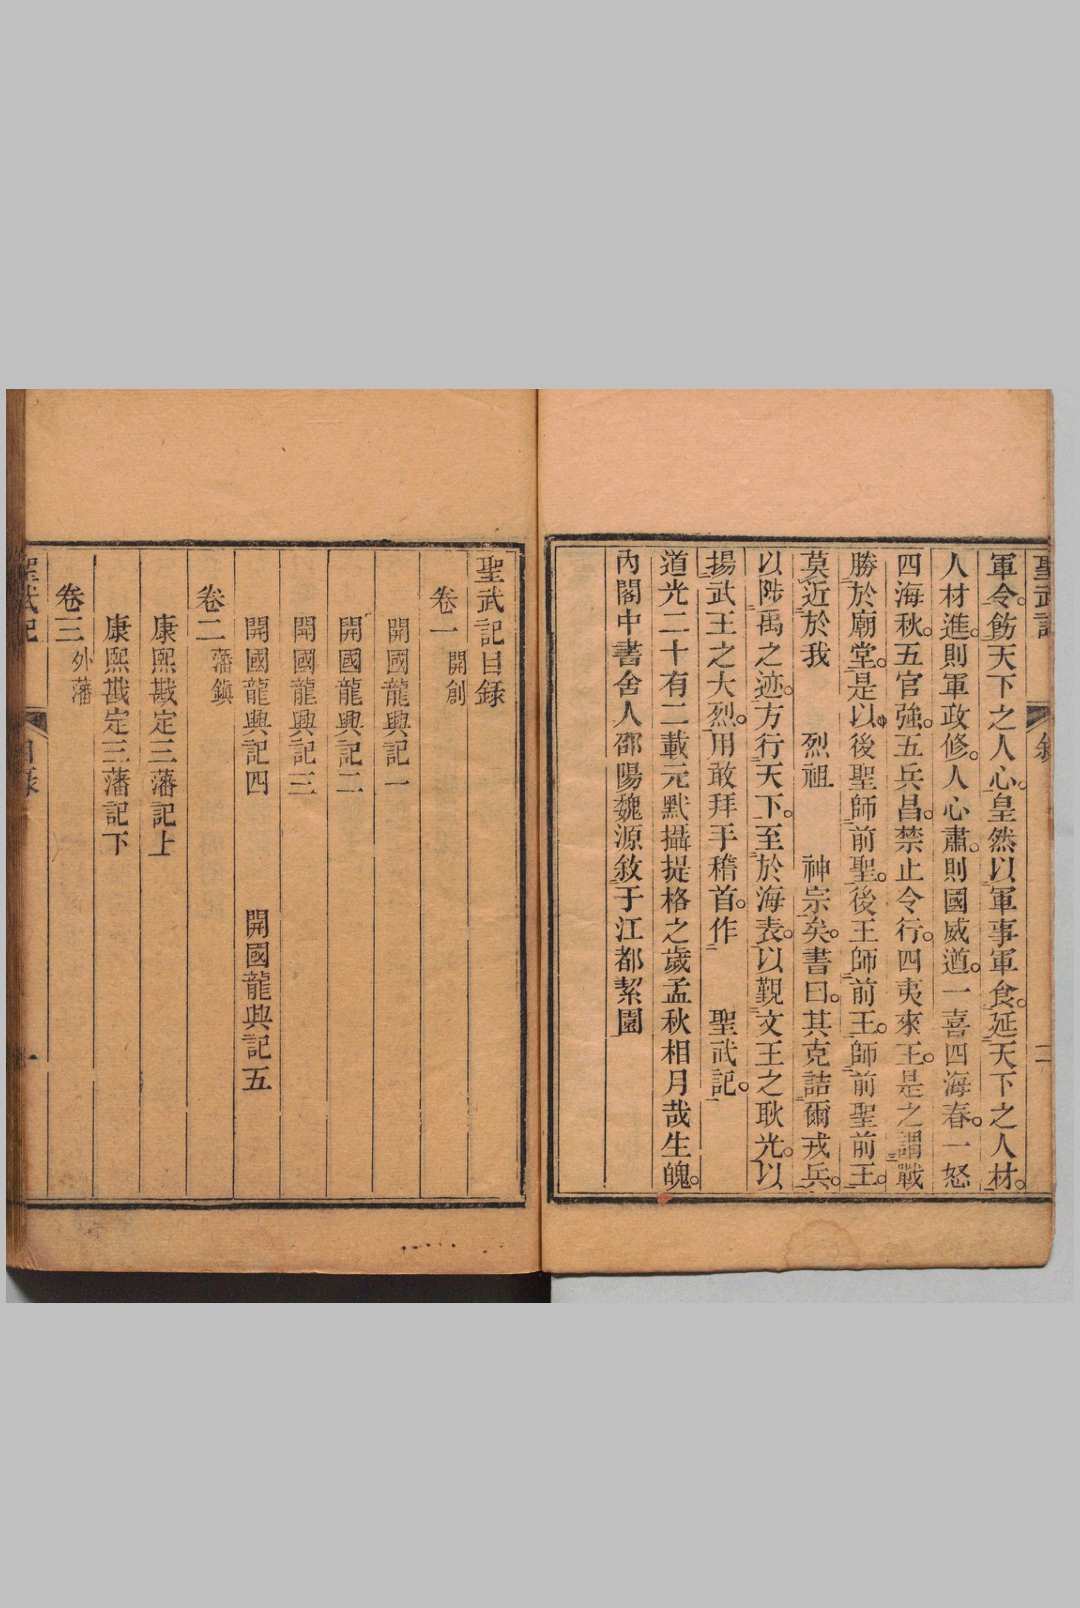 聖武記 敘 二
軍令。飭天下之人心。皇然以軍事軍食。延天下之人材。
人材進。則軍政修。人心肅。則國威遒。一喜四海春。一怒
四海秋。五官強。五兵昌。禁止令行。四夷來王。是之謂戰
勝於廟堂。是以後聖師前聖。後王師前王。師前聖前王。
莫近於我 烈祖 神宗矣。書曰。其克詰爾戎兵。
以陟禹之迹。方行天下。至於海表。以覲文王之耿光。以
揚武王之大烈。用敢拜手稽首。作 聖武記。
道光二十有二載元默攝提格之歲孟秋相月哉生魄。
內閣中書舍人邵陽魏源敘于江都絜園
聖武記目錄
卷一 開創
開國龍興記一
開國龍興記二
開國龍興記三
開國龍興記四 開國龍興記五
卷二 藩鎮
康熙戡定三藩記上
康熙戡定三藩記下
卷三 外藩
聖武記 目錄 一